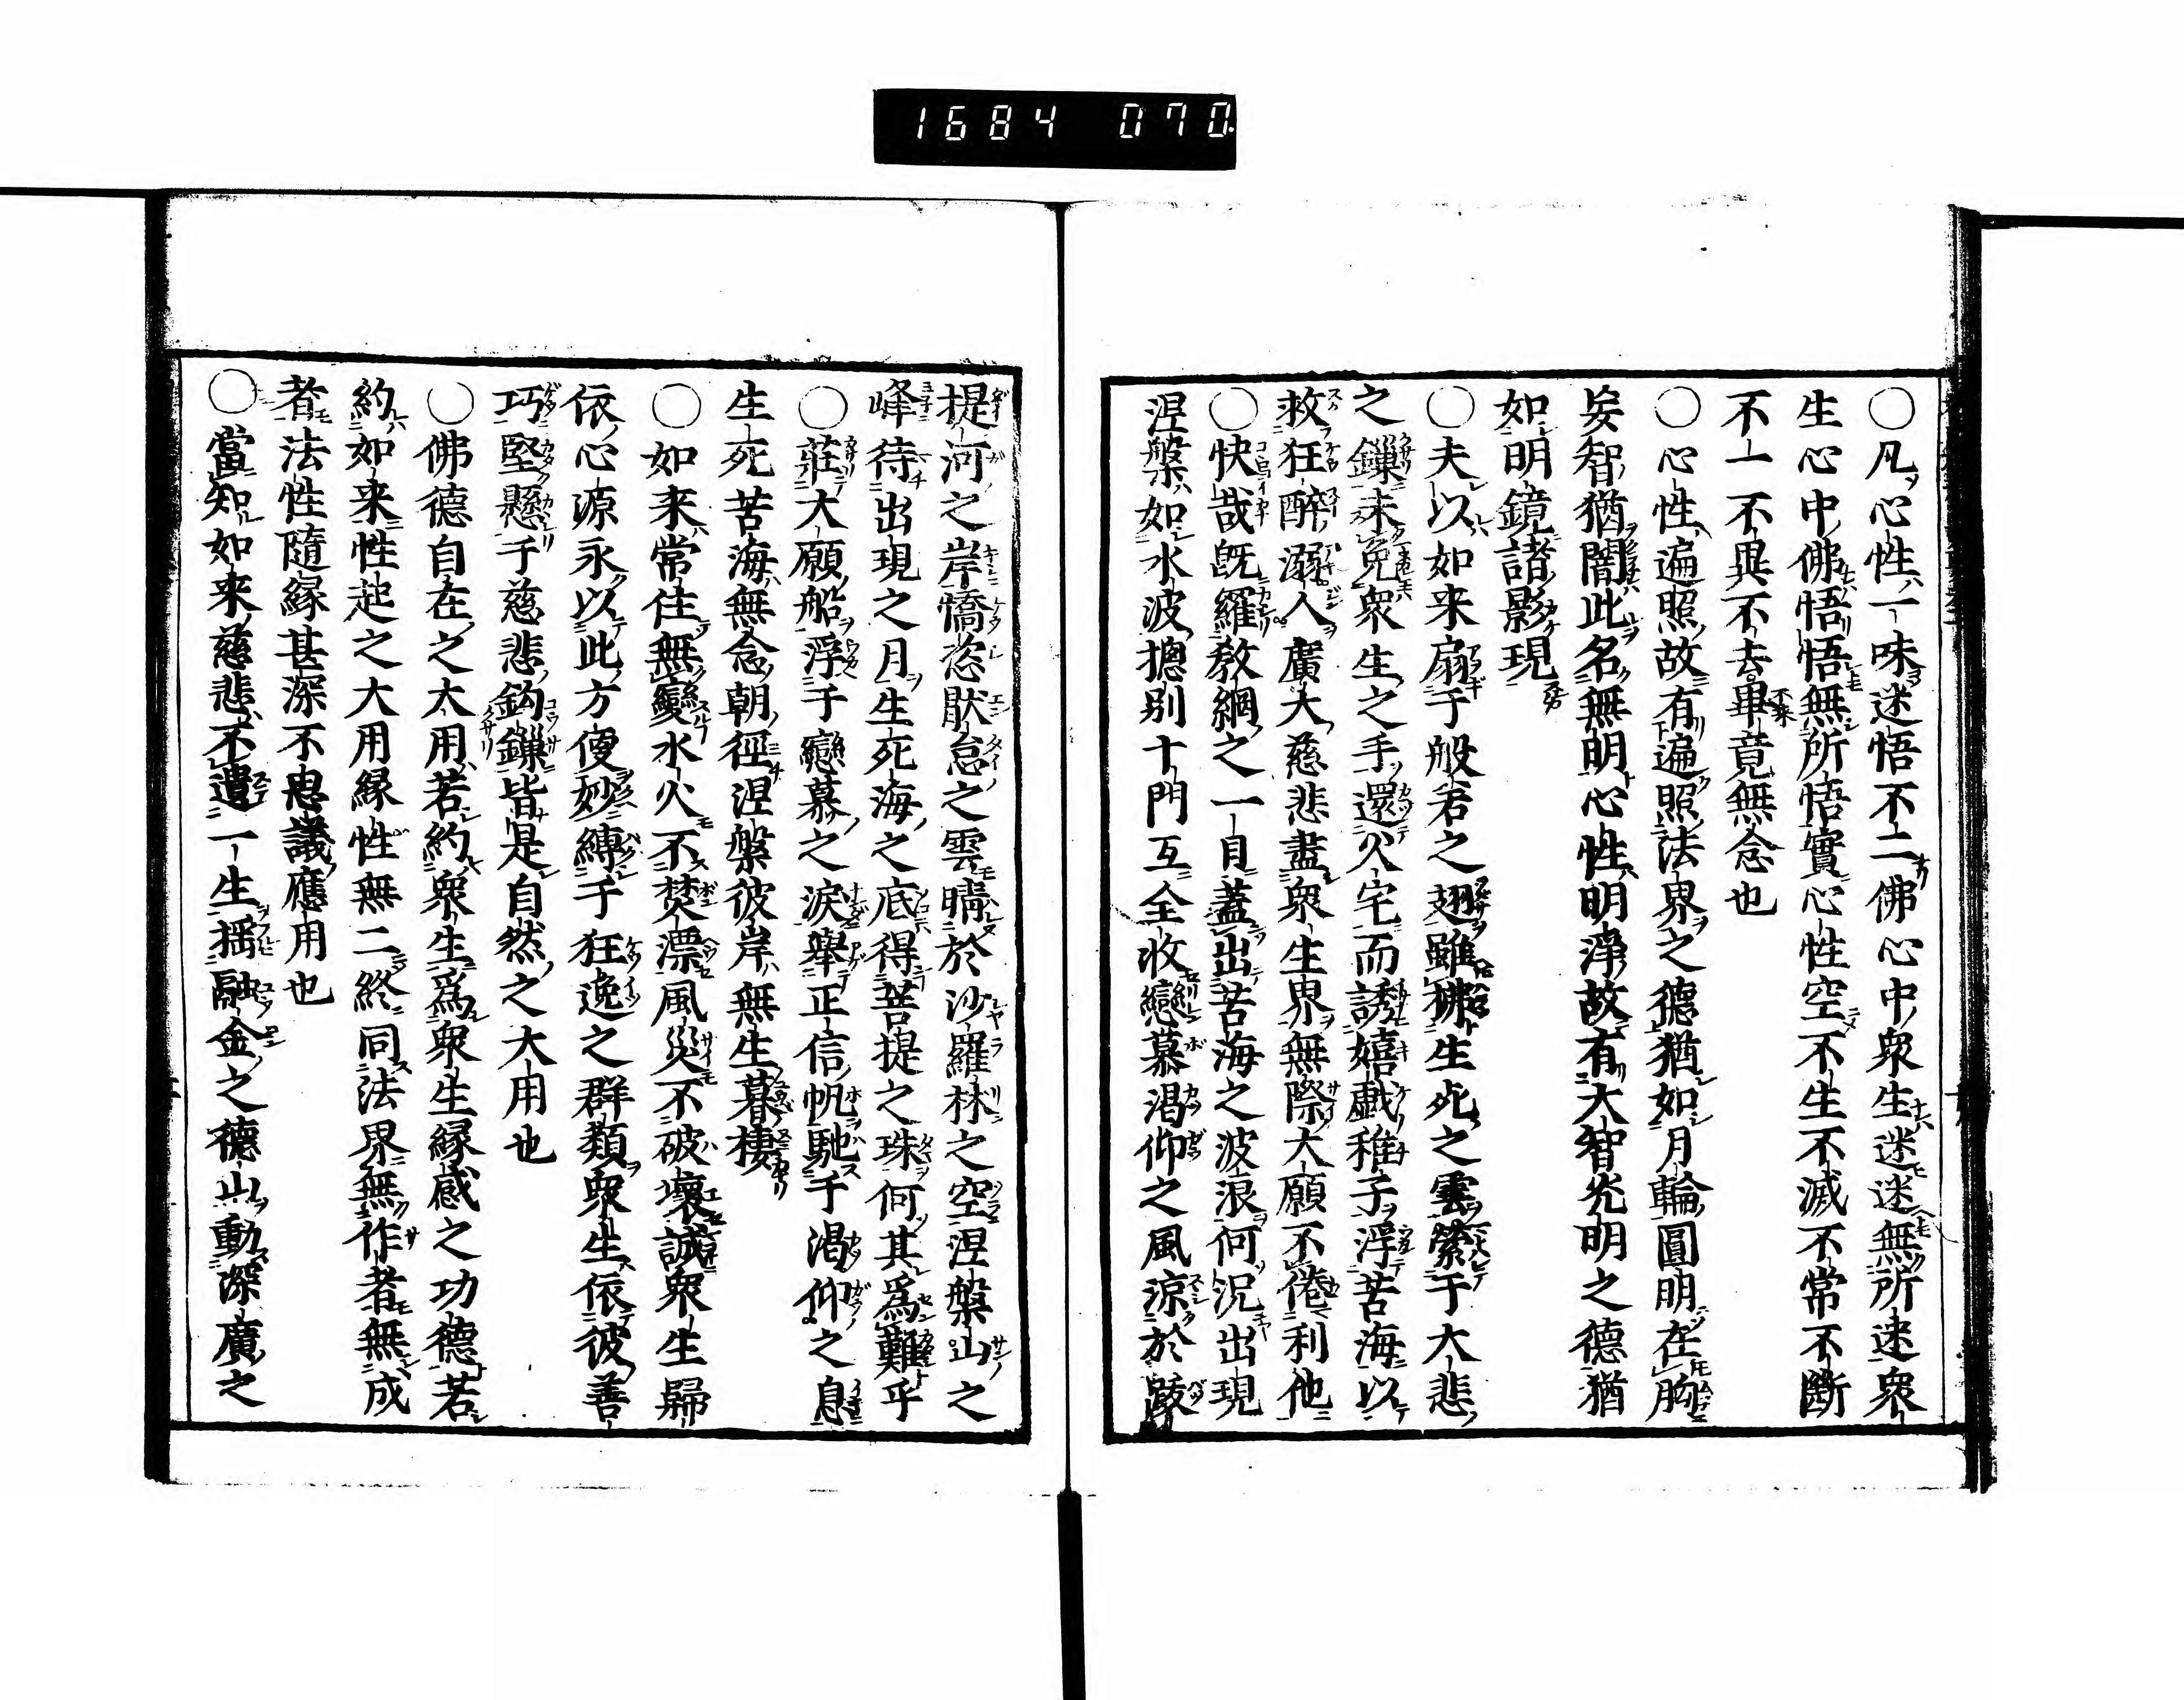 1684 070
〇凡心性一味迷悟不二佛心中衆生迷迷無所迷衆
生心中佛悟悟無所悟實心性空不生不滅不常不斷
不一不異不去畢竟無念也
〇心性遍照故有遍照法界之德猶如月輪圓明在胸
妄智猶闇此名無明心性明淨故有大智光明之德猶
如明鏡諸影現
〇夫以如来扇于般若之翅雖拂生死之雲縈于大悲
之鏁未免衆生之手還火宅而誘嬉戯稚子浮苦海以
救狂醉溺人廣大慈悲盡衆生界無際大願不倦利他
〇快哉既羅教網之一目蓋出苦海之波浪何況出現
涅槃如水波摠别十門互全收戀慕渇仰之風涼於跋
提河之岸憍恣猒怠之雲晴於沙羅林之空涅槃山之
峰待出現之月生死海之底得菩提之珠何其爲難乎
〇莊大願船浮于戀慕之淚舉正信帆馳于渇仰之息
生死苦海無念朝徑涅槃彼岸無生暮棲
〇如来常住無變水火不焚漂風災不破壞誠衆生歸
依心源永以此方便妙縛于狂逸之群類衆生依彼善
巧堅懸于慈悲鈎鏁皆是自然之大用也
〇佛德自在之大用若約衆生爲衆生緣感之功德若
約如来性起之大用緣性無二終同法界無作者無成
者法性隨緣甚深不思議應用也
〇當知如来慈悲不遺一生搖融金之德山動深廣之